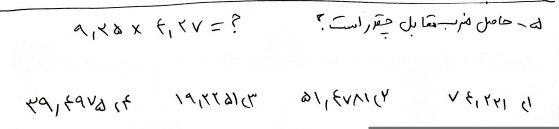 ۵- حاصل ضرب مقابل چقدر است؟ ۹,۲۵ × ۴,۲۷ = ?
۱) ۷۴,۲۲۱ ۲) ۵۱,۴۷۸۱ ۳) ۱۹,۲۲۵۱ ۴) ۳۹,۴۹۷۵